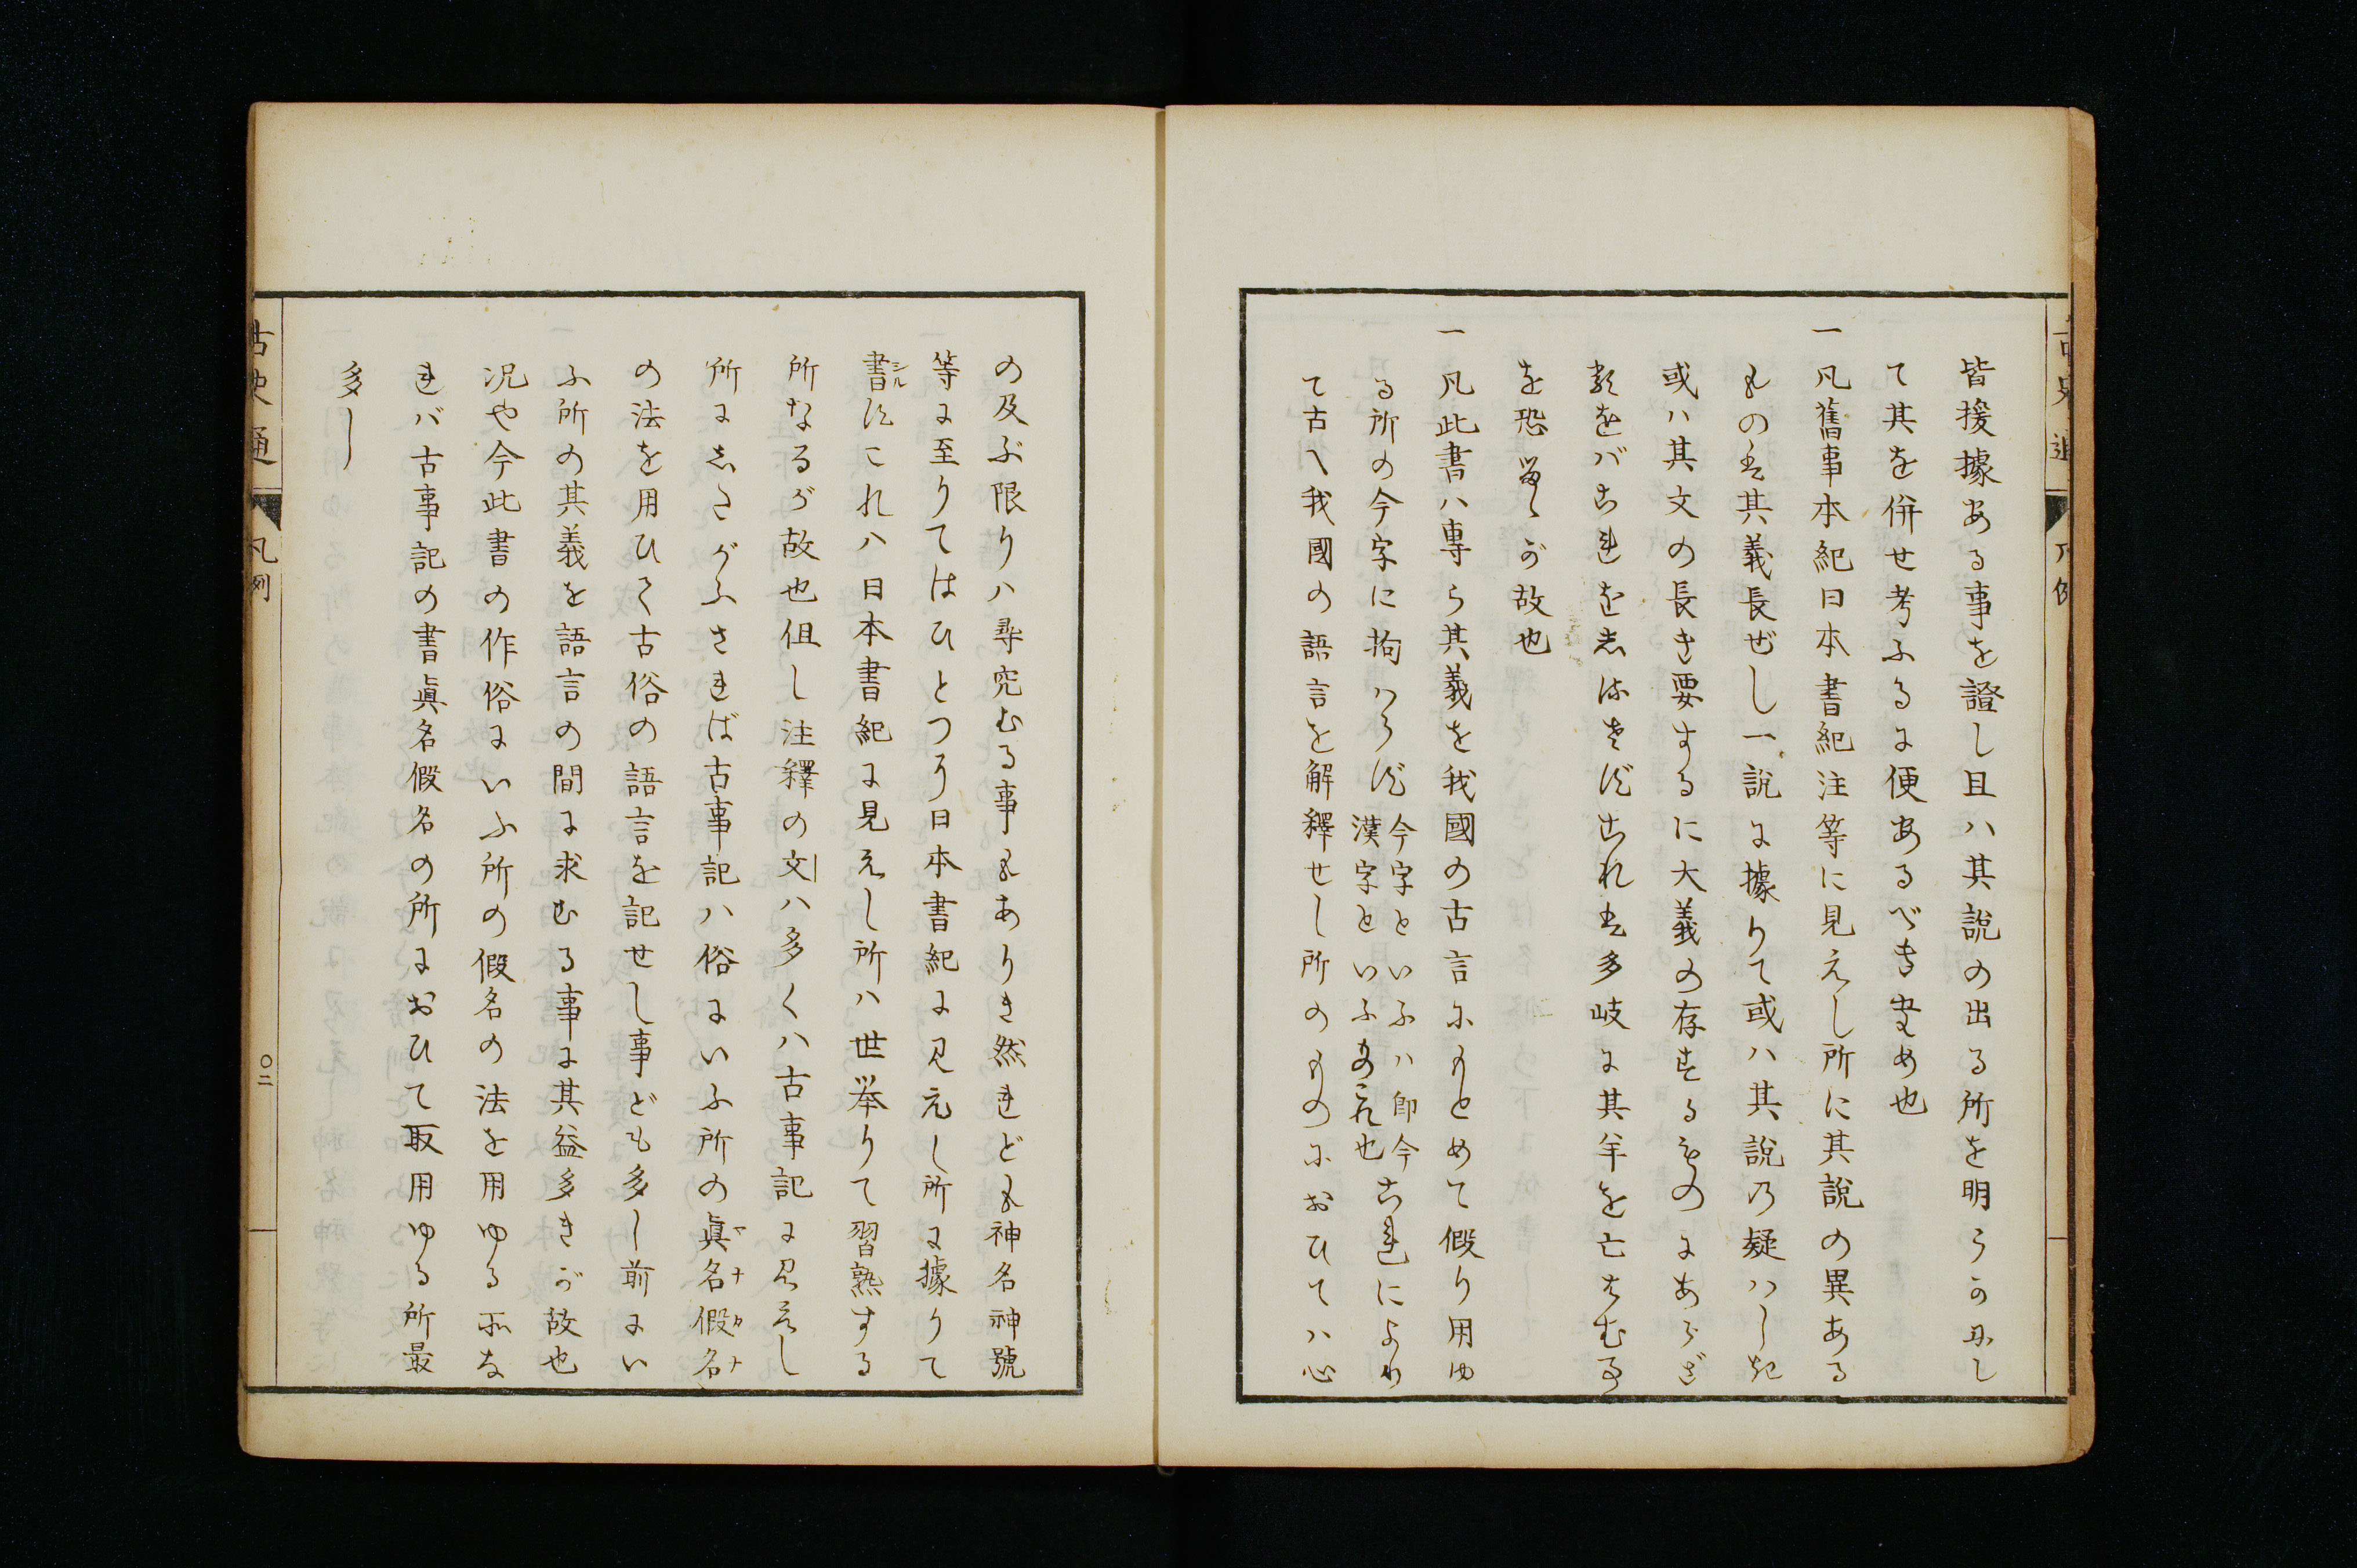 皆援據ある事を證し且ハ其說の出る所を明らかにし
て其を併せ考ふるに便あるべきため也
一凡舊事本紀日本書紀注等に見えし所に其說の異ある
ものは其義長ぜし一說に據りて或ハ其說乃疑ハしき
或ハ其文の長き要するに大義の存するものにあらざ
るをばこれをしるさずこれは多岐に其羊を亡はむ事
を恐るゝが故也
一凡此書ハ專ら其義を我國の古言にもとめて假り用ゆ
る所の今字に拘ハらず
今字といふハ即今これによめり
漢字といふもの是也
て古へ我國の語言を解釋せし所のものにおひてハ心
の及ぶ限りハ尋究むる事もありき然れども神名神號
等に至りてはひとつつ日本書紀に見えし所に據りて
書すこれハ日本書紀に見えし所ハ世舉りて習熟する
所なるが故也但し注釋の文ハ多くハ古事記に見えし
所にしたがふされば古事記ハ俗にいふ所の眞名假名
の法を用ひて古俗の語言を記せし事ども多し前にい
ふ所の其義を語言の間に求むる事に其益多きが故也
况や今此書の作俗にいふ所の假名の法を用ゆる所な
れバ古事記の書眞名假名の所におひて取用ゆる所最
多し
古史通
凡例
〇二